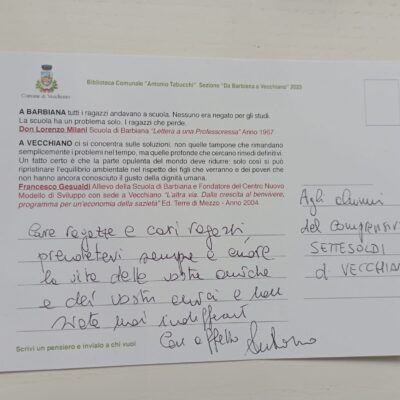 Biblioteca Comunale "Antonio Tabucchi" Sezione "Da Barbiana a Vecchiano" 2023
Comune di Vecchiano
A BARBIANA tutti i ragazzi andavano a scuola. Nessuno era negato per gli studi.
La scuola ha un problema solo. I ragazzi che perde.
Don Lorenzo Milani Scuola di Barbiana "Lettera a una Professoressa" Anno 1967
A VECCHIANO ci si concentra sulle soluzioni, non quelle tampone che rimandano
semplicemente i problemi nel tempo, ma quelle profonde che cercano rimedi definitivi.
Un fatto certo è che la parte opulenta del mondo deve ridurre: solo così si può
ripristinare l'equilibrio ambientale nel rispetto dei figli che verranno e dei poveri che
non hanno ancora conosciuto il gusto della dignità umana.
Francesco Gesualdi Allievo della Scuola di Barbiana e Fondatore del Centro Nuovo
Modello di Sviluppo con sede a Vecchiano "L'altra via. Dalla crescita al benvivere,
programma per un'economia della sazietà" Ed. Terre di Mezzo - Anno 2004
Care ragazze e cari ragazzi
prendetevi sempre a cuore
la vita delle vostre amiche
e dei vostri amici e non
siate mai indifferenti
Con affetto Antonio
Scrivi un pensiero e invialo a chi vuoi
Agli alunni
del comprensivo
SETTESOLDI
di VECCHIANO